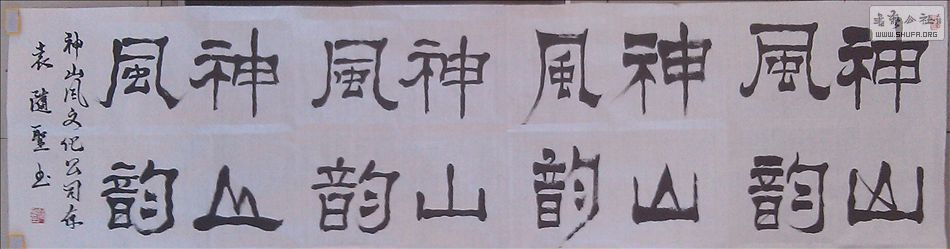 神山
風韵
神山
風韵
神山
風韵
神山
風韵
神山风文化公司存
袁隨聖书
书法公社
www.SHUFA.ORG